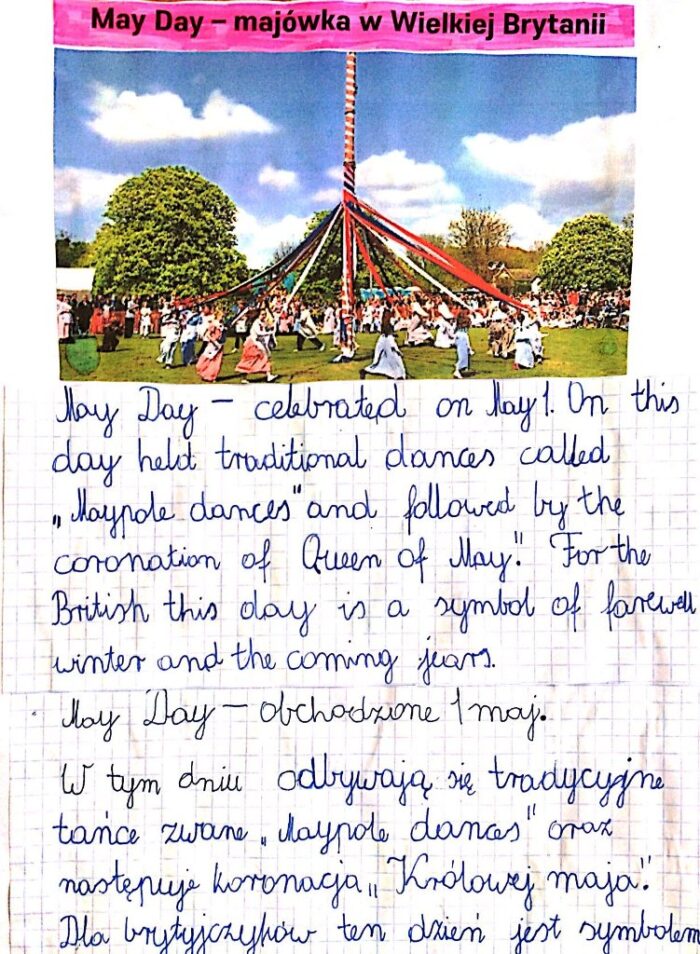 May Day – majówka w Wielkiej Brytanii
May Day – celebrated on May 1. On this
day held traditional dances called
„Maypole dances" and followed by the
coronation of Queen of May". For the
British this day is a symbol of farewell
winter and the coming jears.
May Day – obchodzone 1 maj.
W tym dniu odbywają się tradycyjne
tańce zwane „Maypole dances" oraz
następuje koronacja „Królowej maja".
Dla brytyjczyków ten dzień jest symbolem